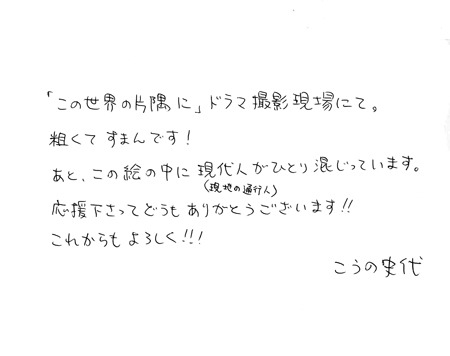 「この世界の片隅に」ドラマ撮影現場にて。
粗くてずまんです！
あと、この絵の中に現代人がひとり混じっています。
(現地の通行人)
応援下さってどうもありがとうございます!!
これからもよろしく!!!
こうの史代